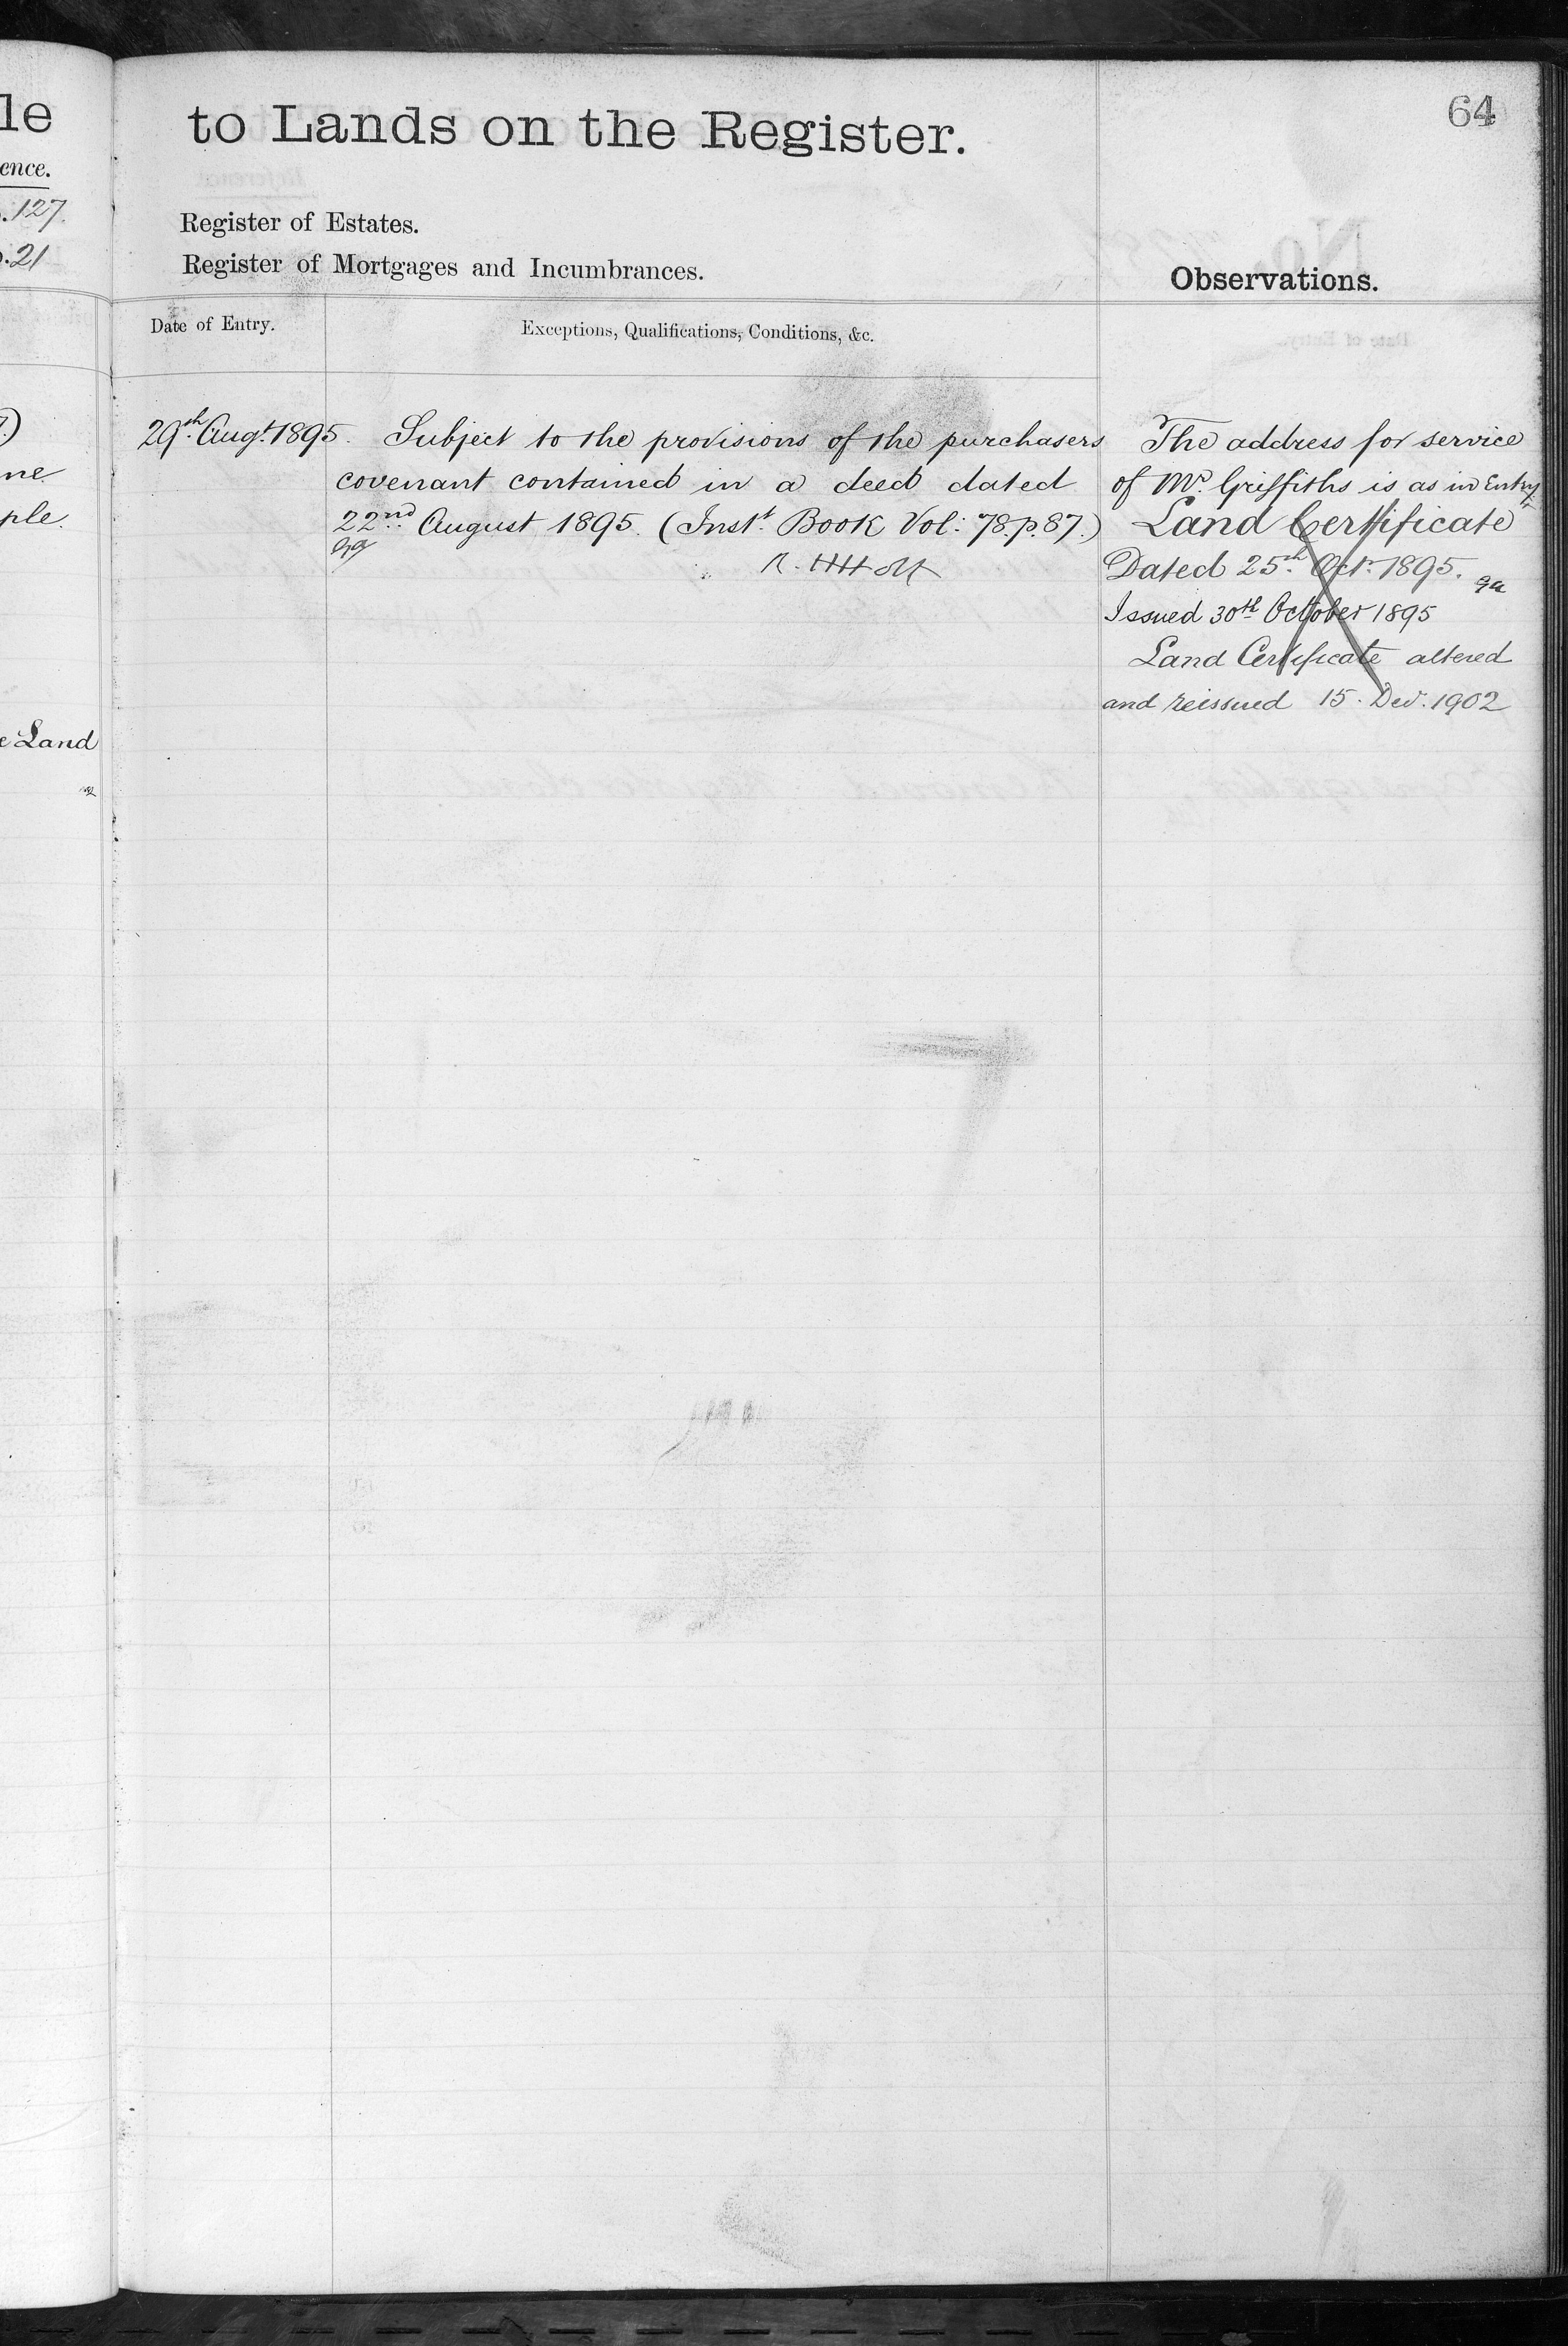 le
ence.
.127.
.21
ne
ple.
e Land
64
to Lands on the Register.
Register of Estates.
Register of Mortgages and Incumbrances.
Observations.
Date of Entry.
Exceptions, Qualifications, Conditions, &c.
29th Augt. 1895.
Subject to the provisions of the purchasers
covenant contained in a deed dated
22nd August 1895. (Inst. Book Vol: 78. p. 87.)
The address for service
of Mr. Griffiths is as in Entry
Land Certificate
Dated 25th Oct. 1895.
Issued 30th October 1895
Land Certificate altered
and reissued 15. Dec. 1902